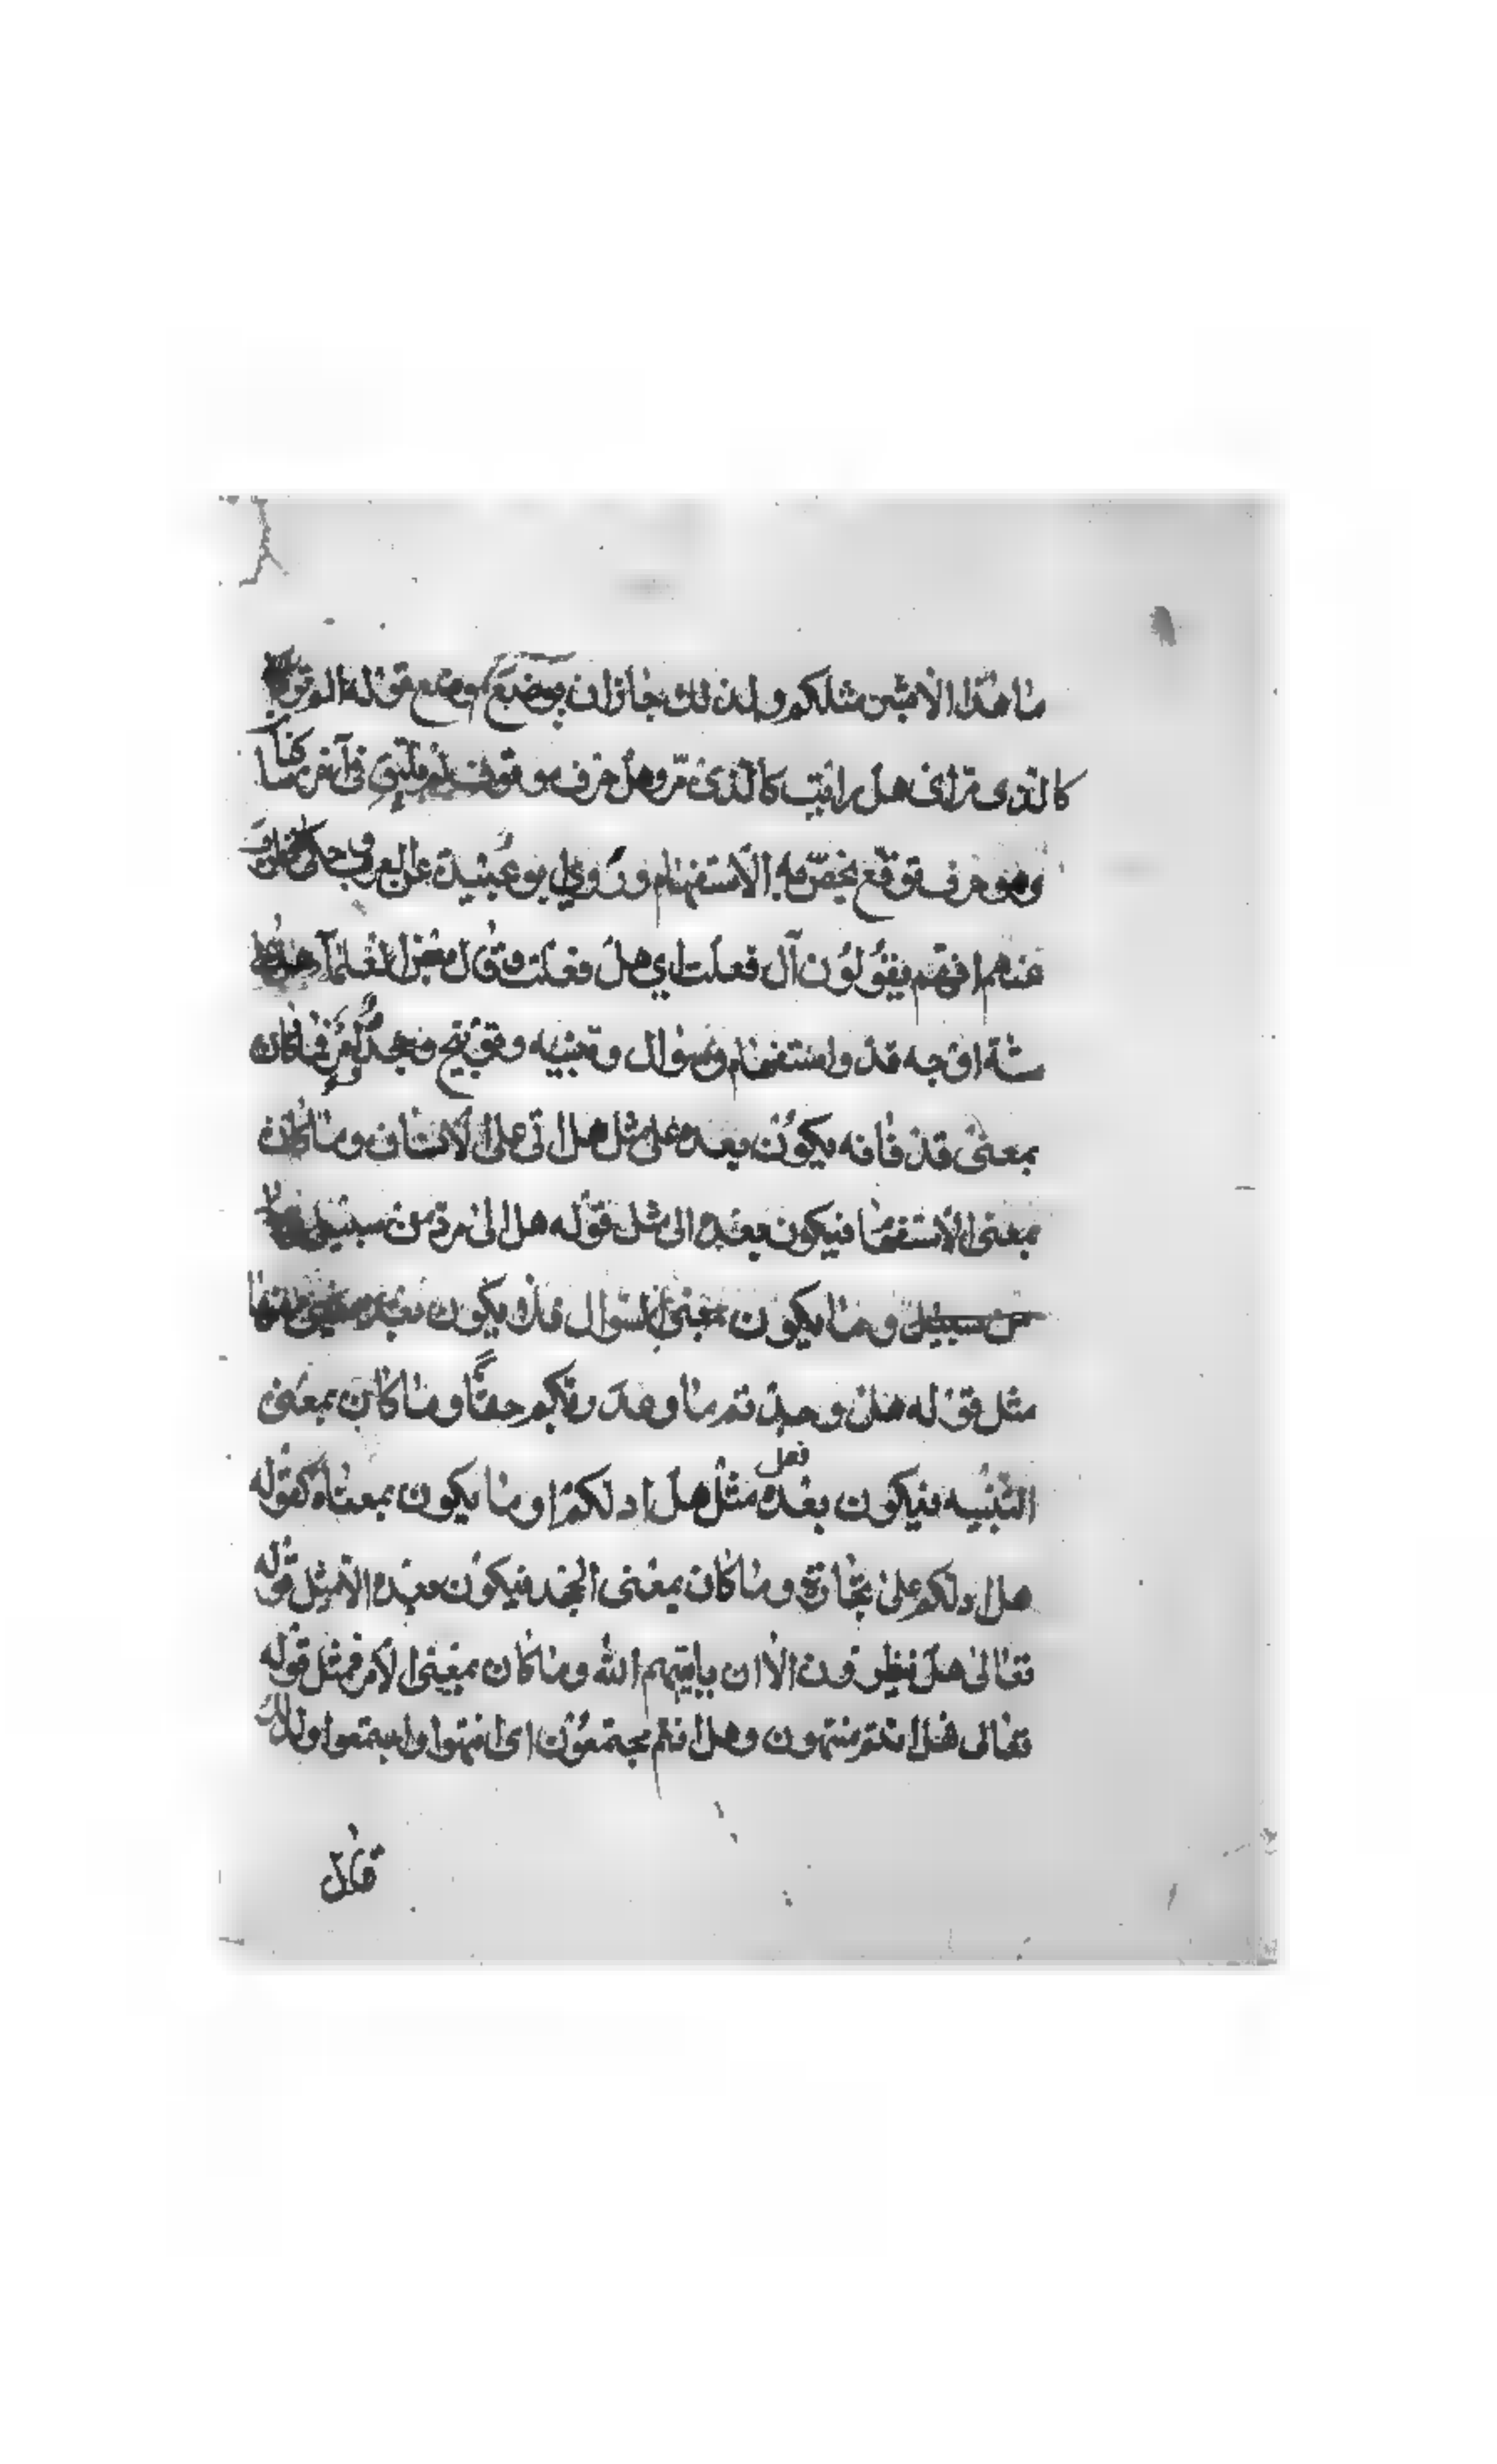 ما هذا الا بشر مثلكم ولذلك جاز ان يوضع موضع قوله الم تر
كالذى تراى هل رايت كالذى مر وهل حرف موقوف لم يلتق فى آخره ساكنا
وهو حرف توقع يخص به الاستفهام وروى ابو عبيدة عن العرب حكى
عنهم انهم يقولون آل فعلت اي هل فعلت وقال بعض العلما هل على
ستة اوجه قد واستفهام وسؤال وتنبيه وتوبيخ وجحد وامر فما كان
بمعنى قد فانه يكون بعده على مثل هل اتى على الانسان وما كان
بمعنى الاستفهام فيكون بعده الى مثل قوله هل الى مرد من سبيل
من سبيل وما يكون بمعنى السوال فان يكون بعده
مثل قوله هل وجدتم ما وعد ربكم حقًا وما كان بمعنى
التنبيه فيكون بعده فعل مثل هل ادلكم وما يكون بمعناه كقوله
هل ادلكم على تجارة وما كان بمعنى الجحد فيكون بعده الا مثل قوله
تعالى هل ينظرون الا ان ياتيهم الله وما كان بمعنى الامر فمثل قوله
تعالى هل انتم منتهون وهل انتم مجتمعون اى انتهوا واجتمعوا ولذلك
قال